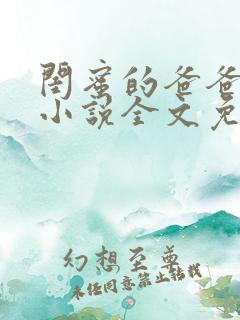 閨蜜的爸爸
小說全文免
幻想至尊
未经同意禁止转载